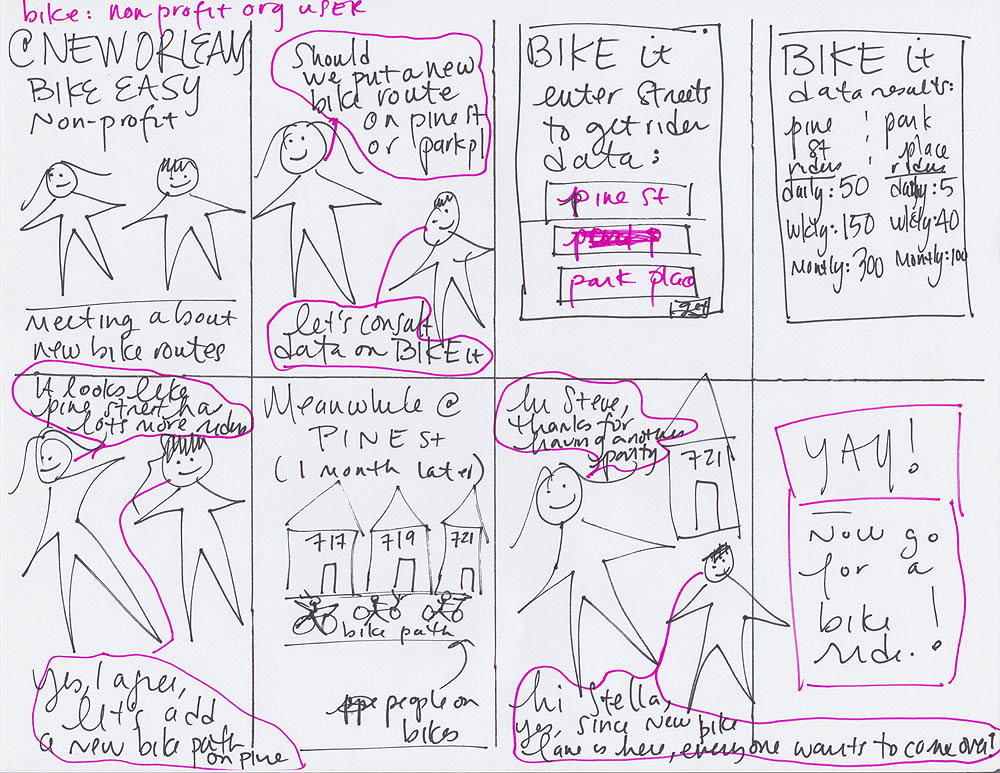 bike: non profit org USER
@ NEW ORLEANS
BIKE EASY
Non-profit
Meeting about
new bike routes
Should
we put a new
bike route
on pine st
or park pl
let's consult
data on BIKE it
BIKE it
enter streets
to get rider
data:
pine st
park place
get
BIKE it
data results:
pine park
st place
riders riders
daily: 50 daily: 5
wkly: 150 wkly: 40
Montly: 300 Montly: 100
It looks like
pine street has
lots more riders
yes, I agree,
let's add
a new bike path
on pine
Meanwhile @
PINE St
(1 month later)
717 719 721
bike path
people on
bikes
hi Steve,
thanks for
having another
party
721
hi Stella,
yes, since new bike
lane is here, everyone wants to come over!
YAY!
Now go
for a
bike
ride!